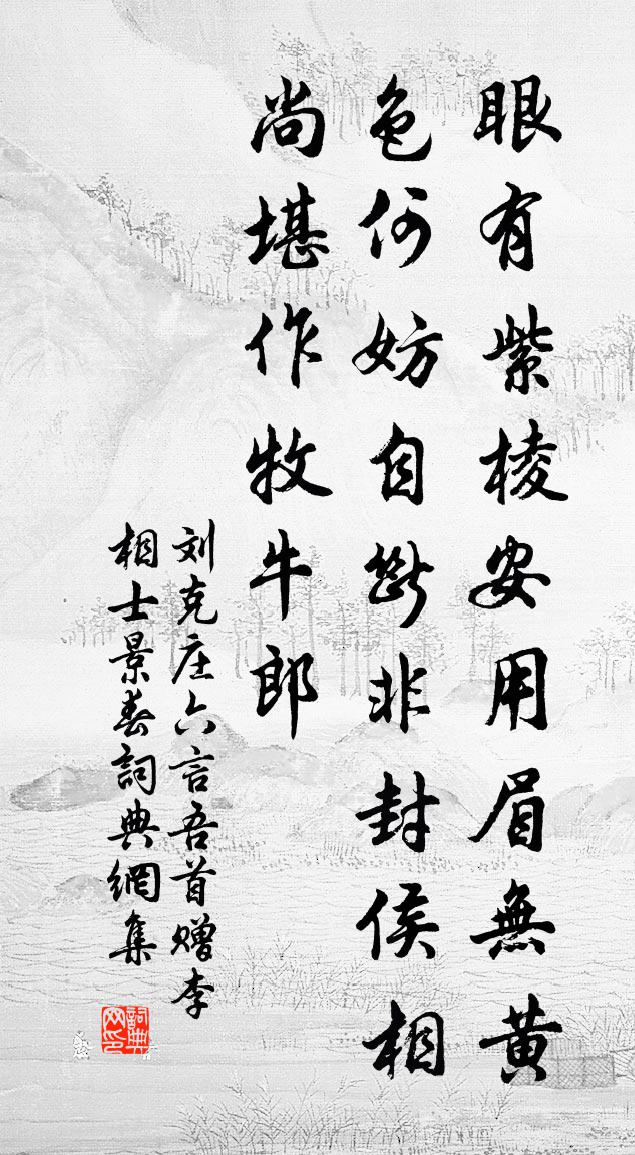 眼有紫棱安用眉無黄
色何妨自斷非封侯相
尚堪作牧牛郎
刘克庄六言吾首赠李
相士景春詞典網集
詞典网印